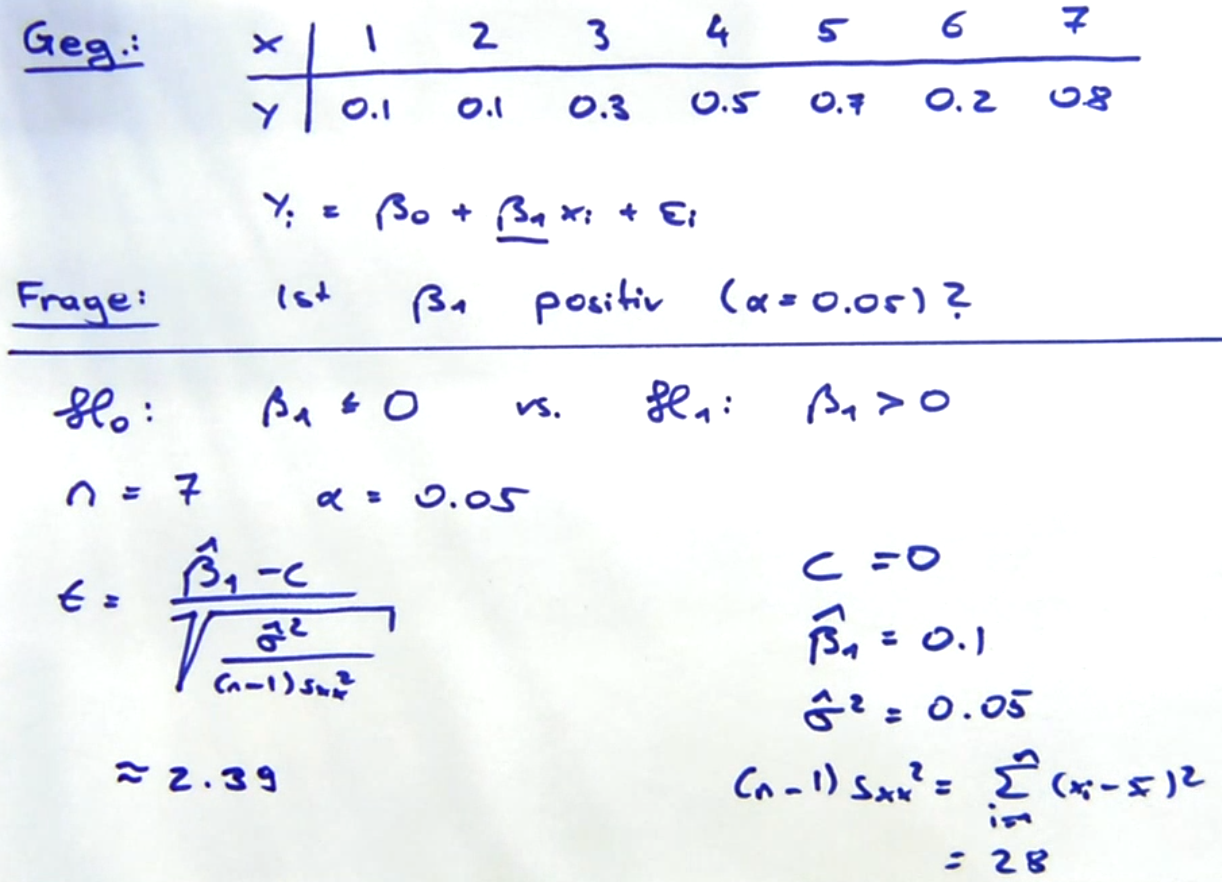 Geg.: x | 1 2 3 4 5 6 7
Y | 0.1 0.1 0.3 0.5 0.7 0.2 0.8
Yᵢ = β₀ + β₁ xᵢ + εᵢ
Frage: Ist β₁ positiv (α = 0.05)?
ℋ₀: β₁ ≤ 0 vs. ℋ₁: β₁ > 0
n = 7 α = 0.05
t = (β̂₁ - c) / √(σ̂² / ((n-1) sₓₓ²))
≈ 2.39
c = 0
β̂₁ = 0.1
σ̂² = 0.05
(n-1) sₓₓ² = Σᵢ₌₁ⁿ (xᵢ - x̄)²
= 28